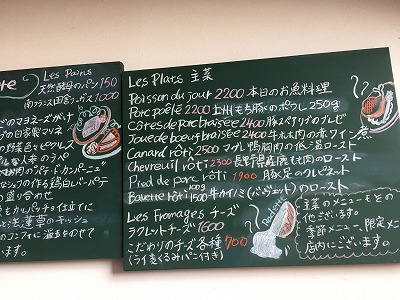 Les Pains
天然酵母のパン 150
1000
のマヨネーズがけ
の自家製マリネ
の野菜とピクルス
な人参のラペ
の盛り合わせ
カルパッチョ仕立てに
蓮草のキッシュ
Les Plats 主菜
Poisson du jour 2200 本日のお魚料理
Porc poêlé 2200 上州もち豚のポワレ 250g
Côtes de porc braisée 2400 豚スペアリブのブレゼ
Joue de boeuf braisée 2400 牛ホホ肉の赤ワイン煮
Canard rôti 2500 マグレ鴨胸肉の低温ロースト
Chevreuil rôti 2300 長野県産鹿モモ肉のロースト
Pied de porc rôti 1900 豚足のクレピネット
Bavette rôti 100g 1500 牛カイノミ(バヴェット)のロースト
Les fromages チーズ
ラクレットチーズ 1600
こだわりのチーズ各種 700
(ライ麦くるみパン付き)
Raclette
主菜のメニューもその
他ございます。
季節メニュー、限定メニ
店内にございます。